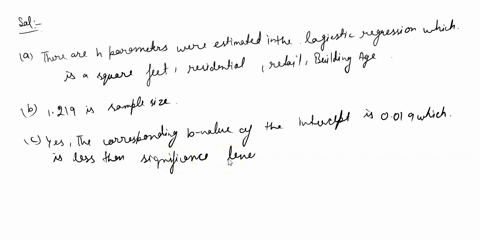 Sol:
(a) There are h parameters were estimated in the logistic regression which
is a square feet, residential, retail, Building Age
(b) 1.219 is sample size.
(c) Yes, The corresponding b-value of the Intercept is 0.019 which
is less then significance leve